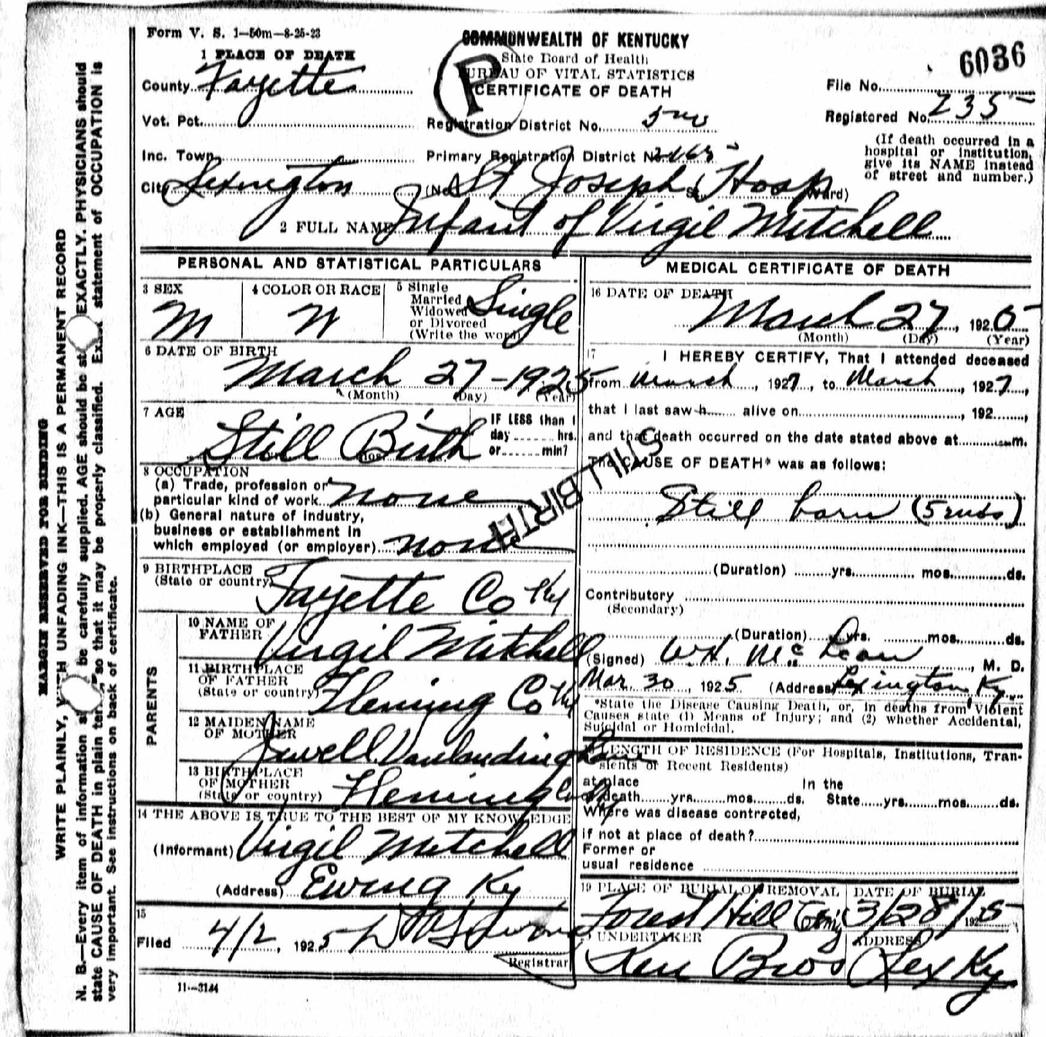 Form V. S. 1-50m-8-25-23
COMMONWEALTH OF KENTUCKY
State Board of Health
BUREAU OF VITAL STATISTICS
CERTIFICATE OF DEATH
P
6036
File No.
Registered No. 235
(If death occurred in a hospital or institution, give its NAME instead of street and number.)
1 PLACE OF DEATH
County Fayette
Vot. Pct.
Registration District No.
Inc. Town
Primary Registration District No. 2165
City Lexington (No. St Joseph Hosp Ward)
2 FULL NAME Infant of Virgil Mitchell
PERSONAL AND STATISTICAL PARTICULARS
3 SEX M
4 COLOR OR RACE W
5 Single Married Widowed or Divorced (Write the word) Single
6 DATE OF BIRTH March 27-1925
(Month) (Day) (Year)
7 AGE Still Birth
IF LESS than 1 day hrs. or min?
8 OCCUPATION
(a) Trade, profession or particular kind of work none
(b) General nature of industry, business or establishment in which employed (or employer) none
STILL BIRTH
9 BIRTHPLACE (State or country) Fayette Co Ky
PARENTS
10 NAME OF FATHER Virgil Mitchell
11 BIRTHPLACE OF FATHER (State or country) Fleming Co Ky
12 MAIDEN NAME OF MOTHER Jewell Vanlandingham
13 BIRTHPLACE OF MOTHER (State or country) Fleming Co Ky
14 THE ABOVE IS TRUE TO THE BEST OF MY KNOWLEDGE
(Informant) Virgil Mitchell
(Address) Ewing Ky
15
Filed 4/2, 1925
Registrar
11-3144
MEDICAL CERTIFICATE OF DEATH
16 DATE OF DEATH March 27, 1925
(Month) (Day) (Year)
17 I HEREBY CERTIFY, That I attended deceased
from March, 1927, to March, 1927,
that I last saw h alive on, 192,
and that death occurred on the date stated above at m.
The CAUSE OF DEATH* was as follows:
Still born (5 mos)
(Duration) yrs. mos. ds.
Contributory
(Secondary)
(Duration) yrs. mos. ds.
(Signed) W.H. McLean, M. D.
Mar. 30, 1925 (Address) Lexington Ky.
*State the Disease Causing Death, or, in deaths from Violent Causes state (1) Means of Injury; and (2) whether Accidental, Suicidal or Homicidal.
LENGTH OF RESIDENCE (For Hospitals, Institutions, Transients or Recent Residents)
at place of death yrs. mos. ds. In the State yrs. mos. ds.
Where was disease contracted,
if not at place of death?
Former or
usual residence
19 PLACE OF BURIAL OR REMOVAL Forest Hill
DATE OF BURIAL 3/28/1925
UNDERTAKER Bros
ADDRESS Lex Ky
MARGIN RESERVED FOR BINDING
WRITE PLAINLY, WITH UNFADING INK—THIS IS A PERMANENT RECORD
N. B.—Every item of information should be carefully supplied. AGE should be stated EXACTLY. PHYSICIANS should
state CAUSE OF DEATH in plain terms so that it may be properly classified. Exact statement of OCCUPATION is
very important. See instructions on back of certificate.